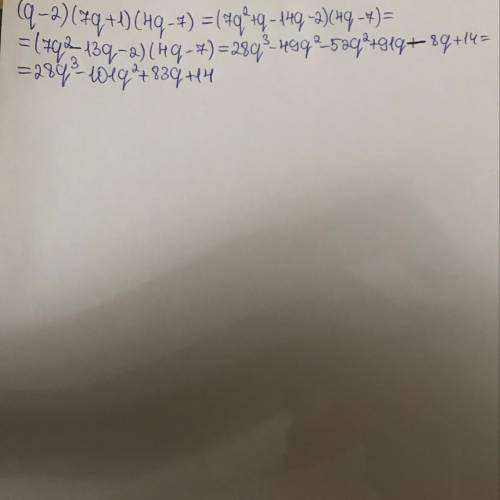 (q-2)(7q+1)(4q-7) = (7q²+q-14q-2)(4q-7)=
=(7q²-13q-2)(4q-7)=28q³-49q²-52q²+91q-8q+14=
=28q³-101q²+83q+14